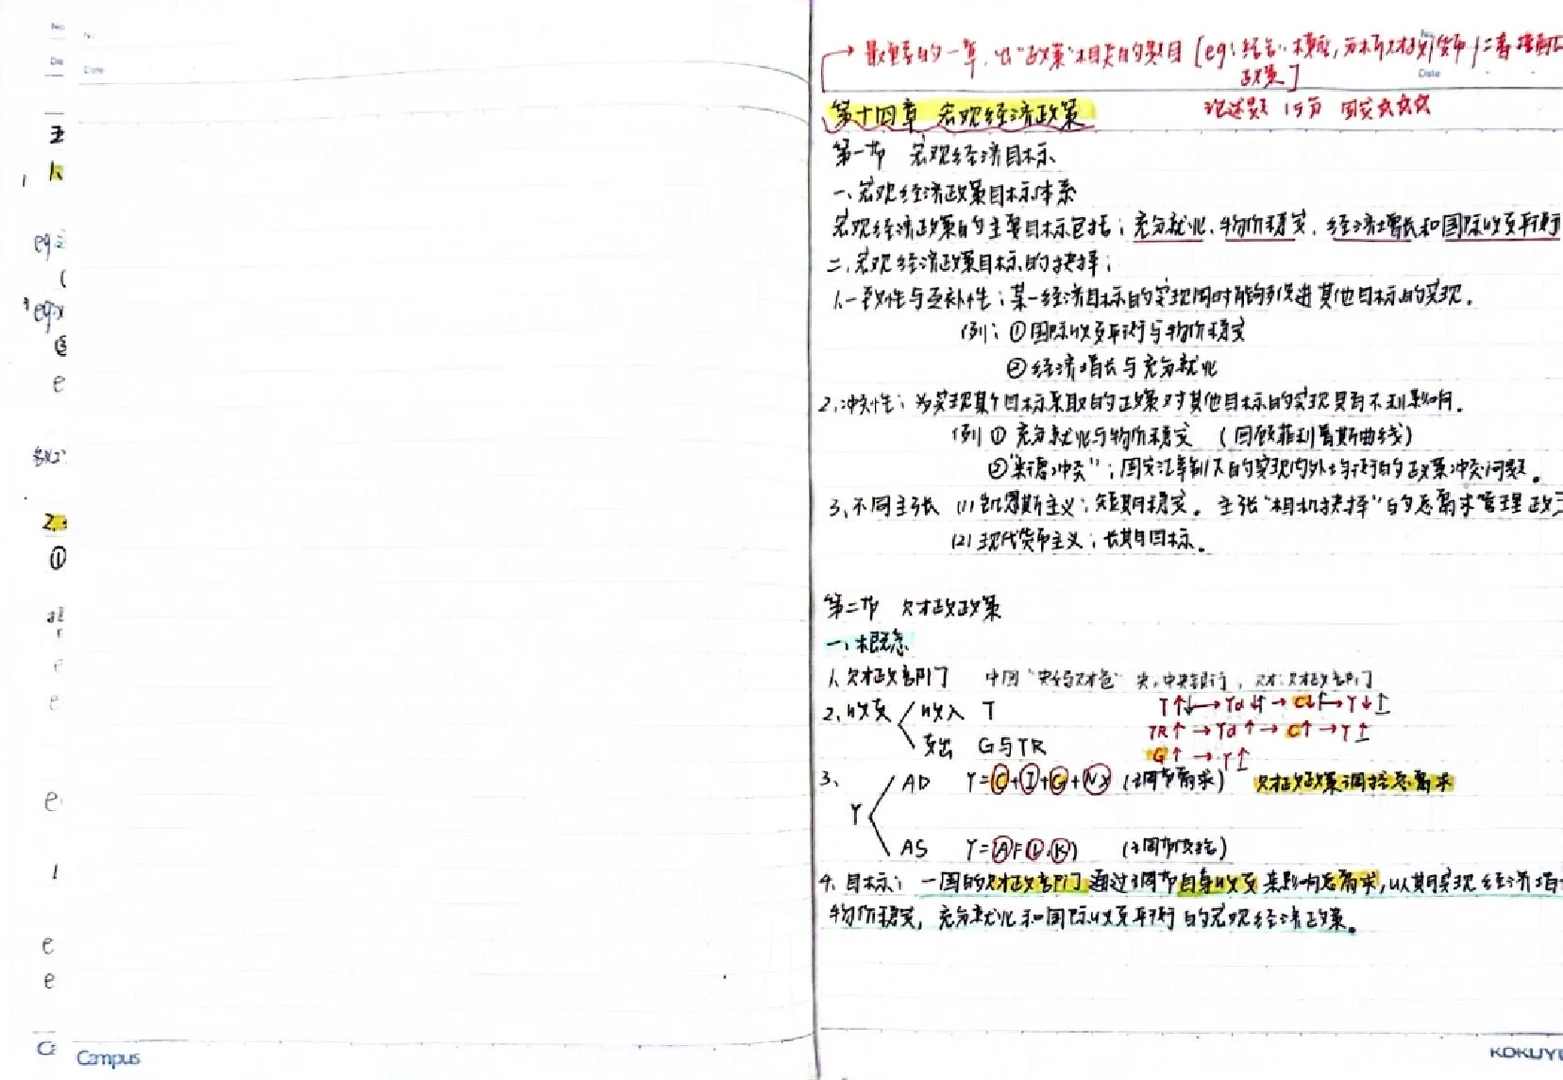 No
Date
五
1.
eg:
(
eg:
e
2.
①
e
e
e
e
e
Campus
→ 最重要的一章，出"政策"相关的题目 [eg: 结合模型，分析财政/货币/二者搭配的
政策]
Date
第十四章 宏观经济政策
论述题 15分 国家
第一节 宏观经济目标
一、宏观经济政策目标体系
宏观经济政策的主要目标包括：充分就业、物价稳定、经济增长和国际收支平衡
二、宏观经济政策目标的抉择：
1、一致性与互补性：某一经济目标的实现同时能够促进其他目标的实现。
例：①国际收支平衡与物价稳定
②经济增长与充分就业
2、冲突性：为实现某个目标采取的政策对其他目标的实现具有不利影响。
例 ① 充分就业与物价稳定 (回顾菲利普斯曲线)
②"米德冲突"：固定汇率制下的实现内外均衡的政策冲突问题。
3、不同主张 (1) 凯恩斯主义：短期稳定。主张"相机抉择"的总需求管理政
(2) 现代货币主义：长期目标。
第二节 财政政策
一、概念
1、财政部门 中国"央妈财爸" 央：中央银行，财：财政部门
2、收支 收入 T T↑↓→Yd↓↑→C↓↑→Y↓↑
支出 G与TR TR↑→Yd↑→C↑→Y↑
G↑→Y↑
3、 AD Y=C+I+G+NX (调节需求) 财政政策调控总需求
Y
AS Y=AF(L,K) (调节供给)
4、目标：一国的财政部门通过调节自身收支来影响总需求，以期实现经济增
物价稳定，充分就业和国际收支平衡的宏观经济政策。